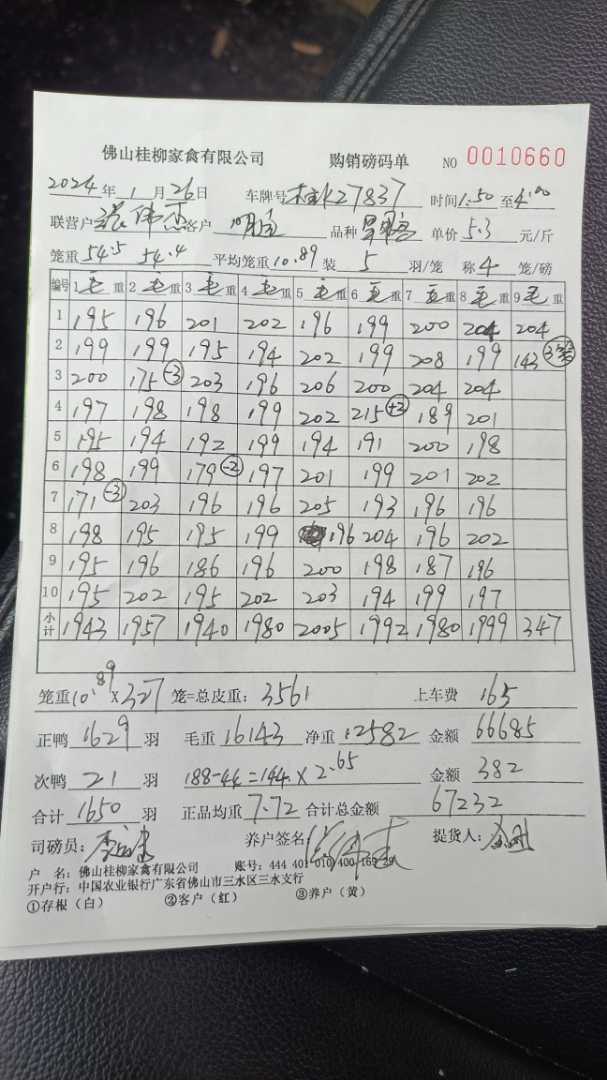 佛山桂柳家禽有限公司 购销磅码单 NO 0010660
2024年1月26日 车牌号 27837 时间1:50至4:00
联营户 客户 品种 单价 5.3 元/斤
笼重 54.5 54.4 平均笼重 10.89 装 5 羽/笼 称 4 笼/磅
编号 1 毛重 2 毛重 3 毛重 4 毛重 5 毛重 6 毛重 7 毛重 8 毛重 9 毛重
1 195 196 201 202 196 199 200 204 204
2 199 199 195 194 202 199 208 199 143
3 200 175 -3 203 196 206 200 204 204
4 197 198 198 199 202 215 +3 189 201
5 195 194 192 199 194 191 200 198
6 198 199 179 -2 197 201 199 201 202
7 171 -3 203 196 196 205 193 196 196
8 198 195 195 199 196 204 196 202
9 195 196 186 196 200 198 187 196
10 195 202 195 202 203 194 199 197
小计 1943 1957 1940 1980 2005 1992 1980 1999 347
笼重 10.89 × 327 笼=总皮重: 3561 上车费 165
正鸭 1629 羽 毛重 16143 净重 12582 金额 66685
次鸭 21 羽 188-44=144 × 2.65 金额 382
合计 1650 羽 正品均重 7.72 合计总金额 67232
司磅员: 养户签名 提货人:
户 名: 佛山桂柳家禽有限公司 账号: 444 401 010 400 165 29
开户行: 中国农业银行广东省佛山市三水区三水支行
①存根(白) ②客户(红) ③养户(黄)